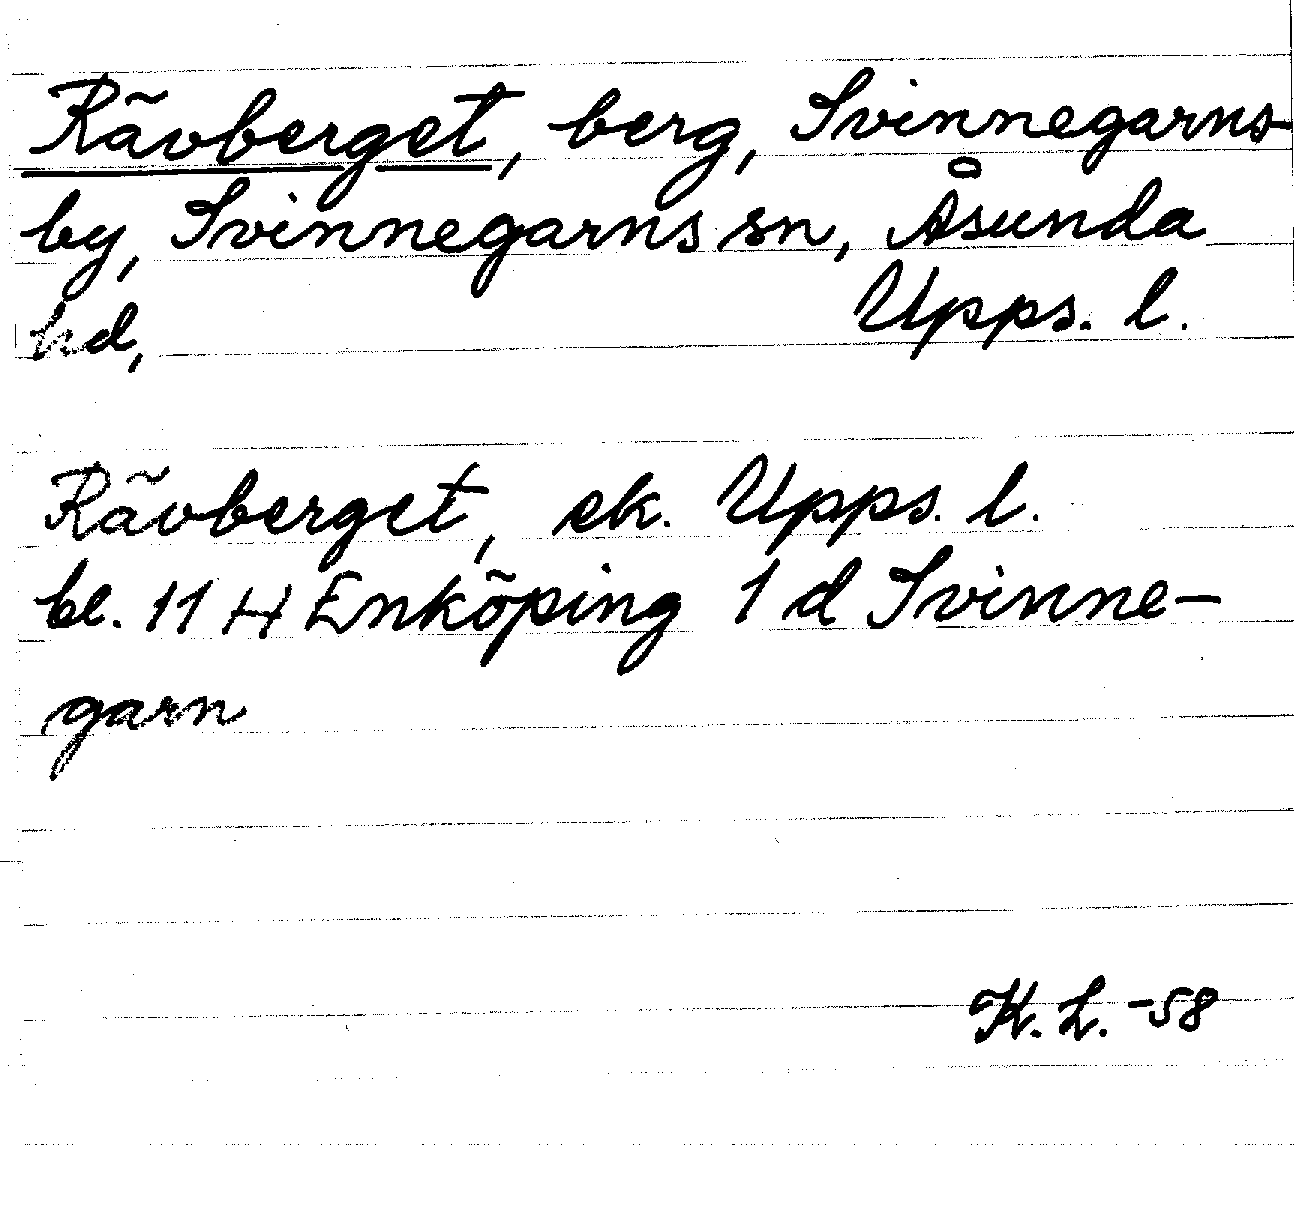 Rävberget, berg, Svinnegarns-
by, Svinnegarns sn, Åsunda
hd, Upps. l.
Rävberget, ek. Upps. l.
bl. 11 H Enköping 1 d Svinne-
garn
K. L. -58